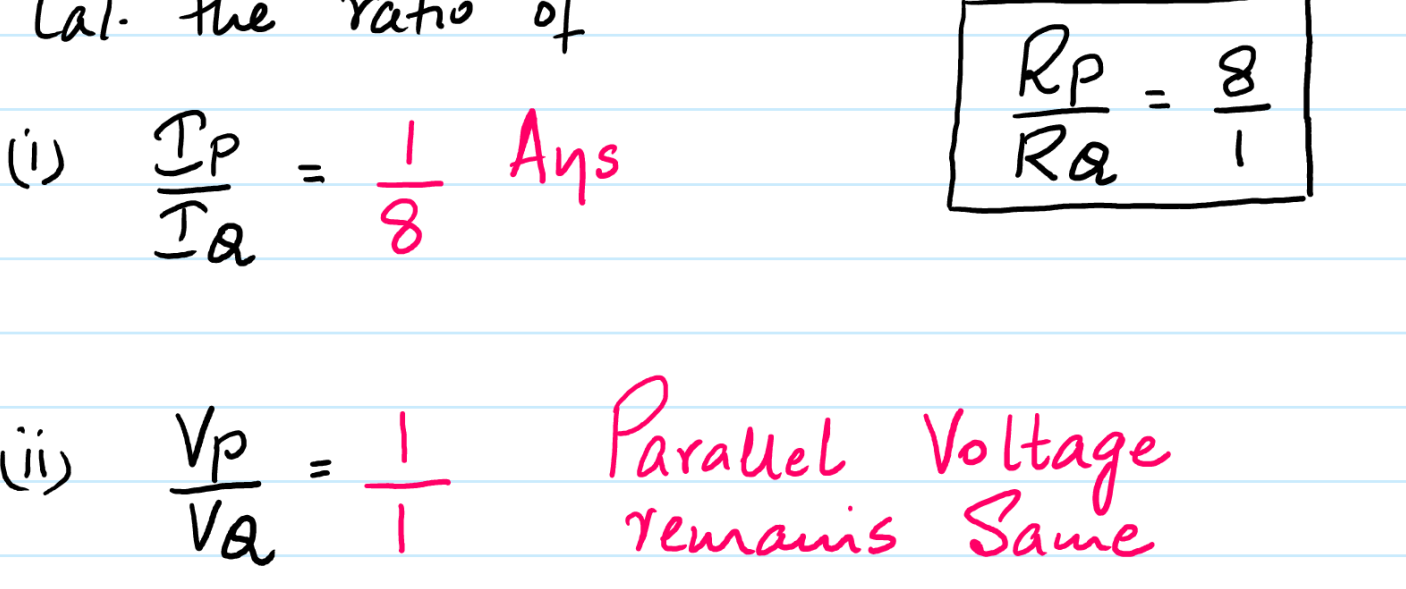 Cal. the ratio of
RP/RQ = 8/1
(i) IP/IQ = 1/8 Ans
(ii) VP/VQ = 1/1 Parallel Voltage
remains Same